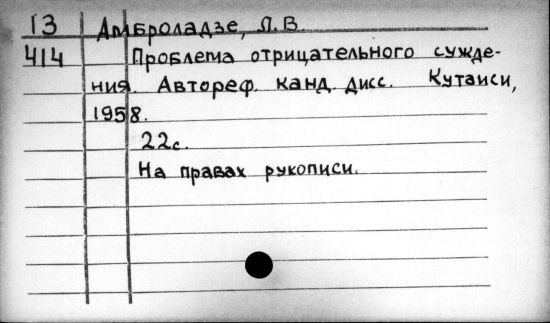 13 Амброладзе, Л. В.
414 Проблема отрицательного сужде-
ния. Автореф. канд. дисс. Кутаиси,
1958.
22с.
На правах рукописи.